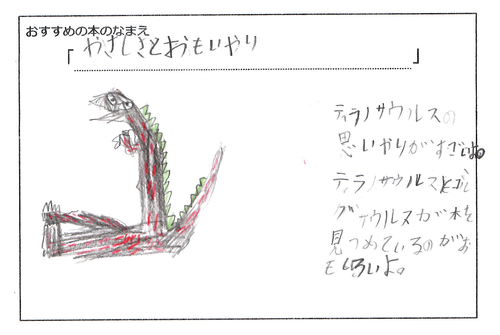 おすすめの本のなまえ
「やさしさとおもいやり」
ティラノサウルスの
思いやりがすごいよ。
ティラノサウルスとゴル
ゴサウルスが木を
見つめているのがお
もしろいよ。